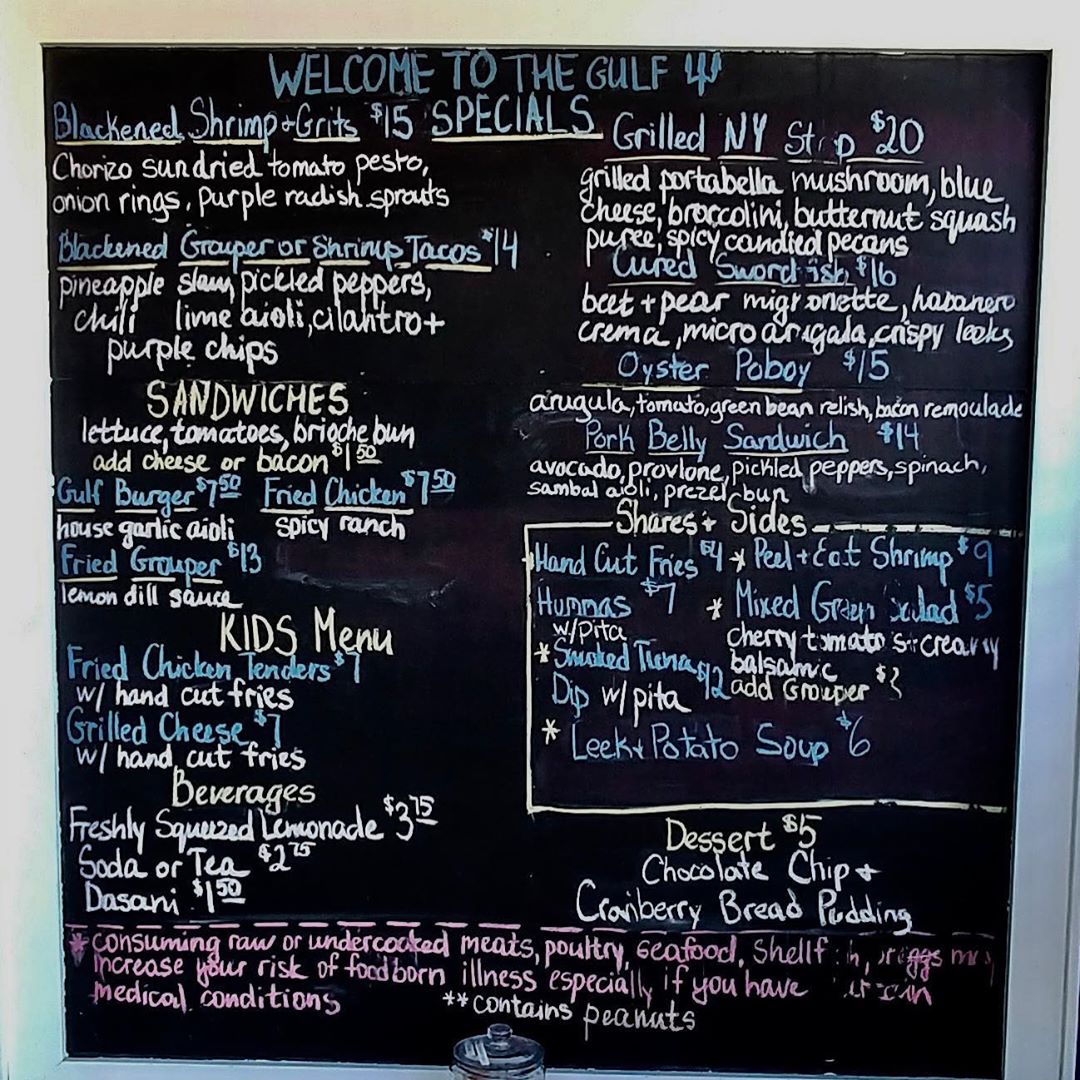 WELCOME TO THE GULF
SPECIALS
Blackened Shrimp + Grits $15
Chorizo sundried tomato pesto,
onion rings, purple radish sprouts
Blackened Grouper or Shrimp Tacos $14
pineapple slaw, pickled peppers,
chili lime aioli, cilantro +
purple chips
SANDWICHES
lettuce, tomatoes, brioche bun
add cheese or bacon $1.50
Gulf Burger $7.50 Fried Chicken $7.50
house garlic aioli spicy ranch
Fried Grouper $13
lemon dill sauce
KIDS Menu
Fried Chicken Tenders $7
w/ hand cut fries
Grilled Cheese $7
w/ hand cut fries
Beverages
Freshly Squeezed Lemonade $3.75
Soda or Tea $2.75
Dasani $1.50
Grilled NY Strip $20
grilled portabella mushroom, blue
cheese, broccolini, butternut squash
puree, spicy candied pecans
Cured Swordfish $16
beet + pear migronette, habanero
crema, micro arugala, crispy leeks
Oyster Poboy $15
arugula, tomato, green bean relish, bacon remoulade
Pork Belly Sandwich $14
avocado, provlone, pickled peppers, spinach,
sambal aioli, prezel bun
Shares + Sides
Hand Cut Fries $4
Hummas $7
w/pita
* Smoked Tuna $12
Dip w/pita
* Leek + Potato Soup $6
* Peel + Eat Shrimp $9
* Mixed Green Salad $5
cherry tomatos creamy
balsamic
add Grouper
Dessert $5
Chocolate Chip +
Cranberry Bread Pudding
* consuming raw or undercooked meats, poultry, seafood, shellfish, or eggs may
increase your risk of foodborn illness especially if you have certain
medical conditions
** contains peanuts